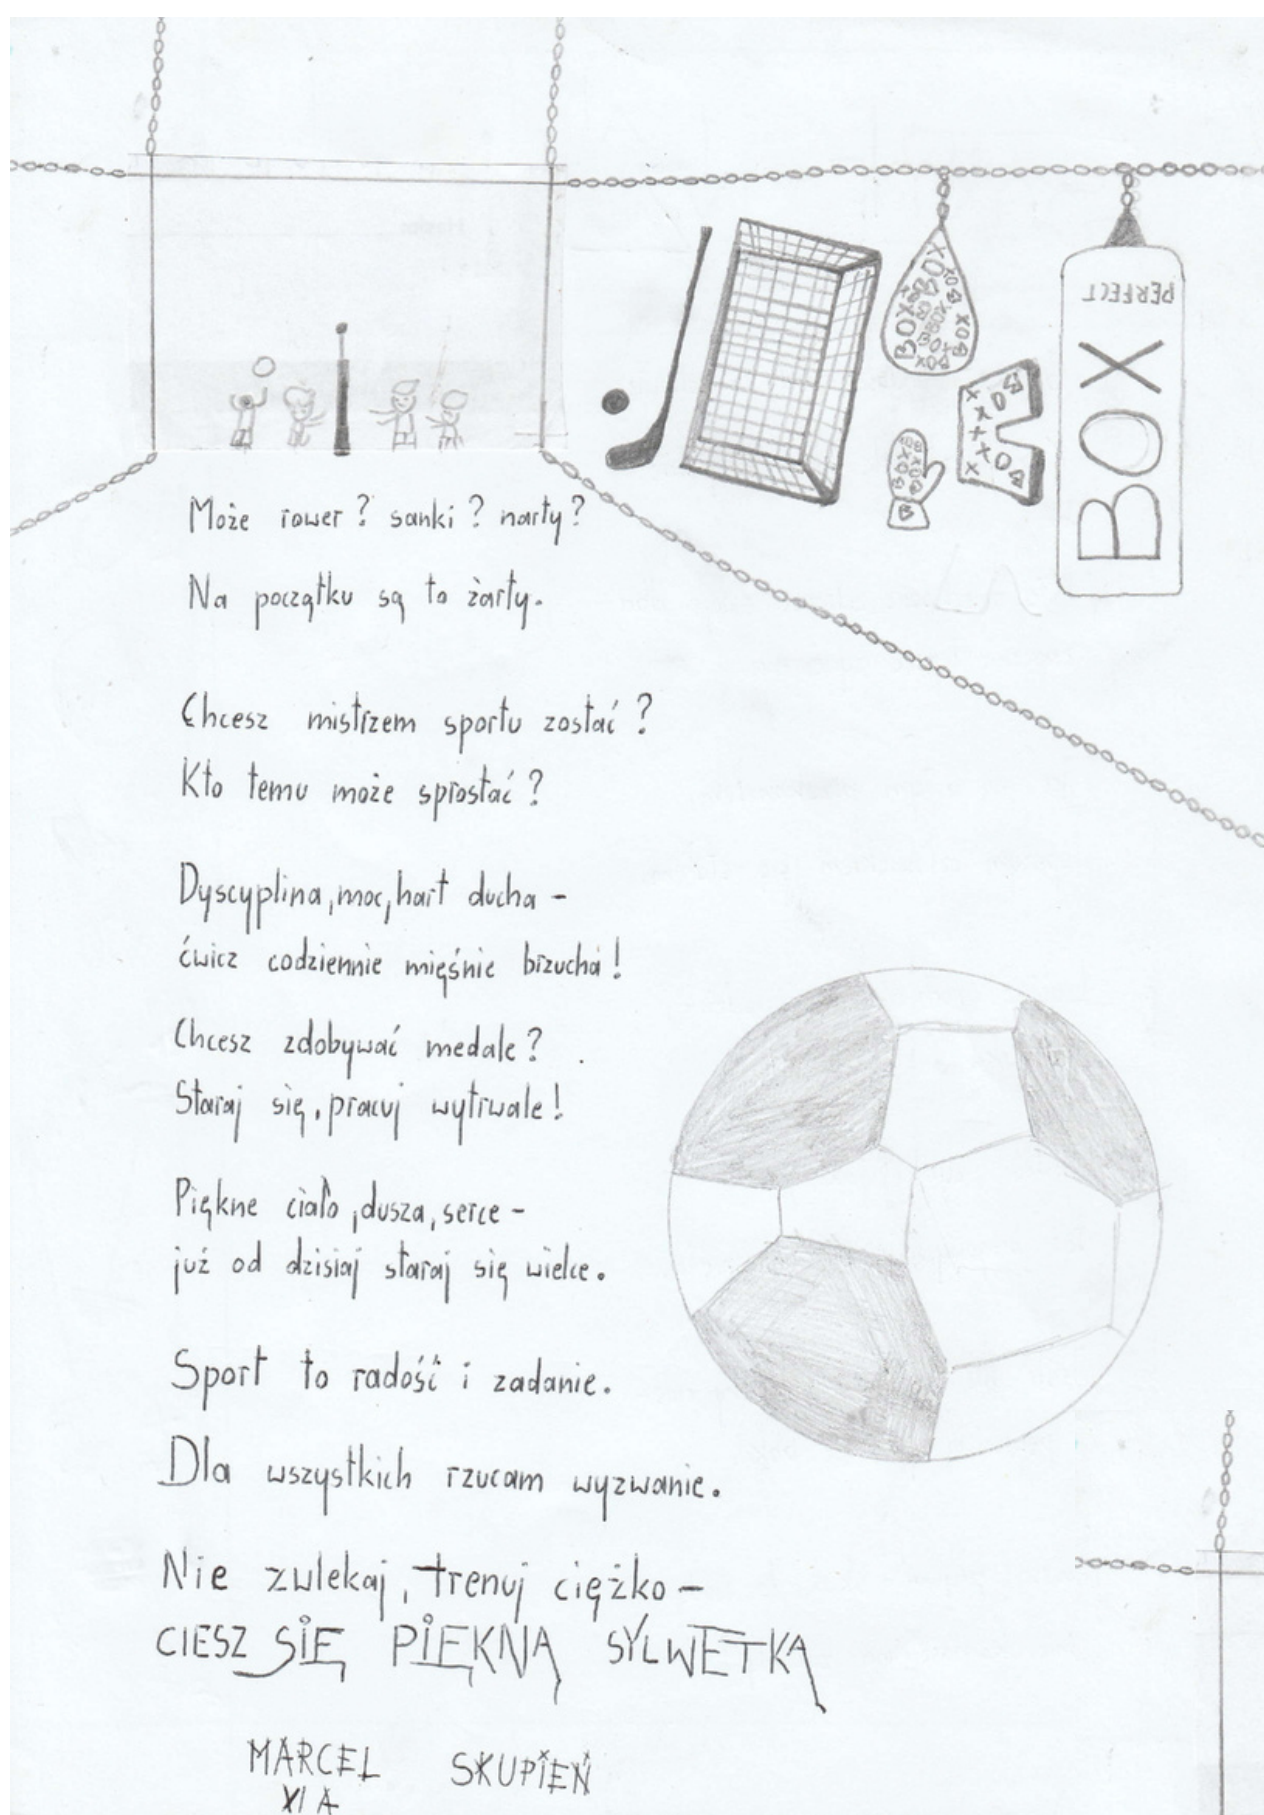 BOX BOX BOX BOX BOX BOX BOX
BOX
BOX
PERFECT
BOX
Może rower? sanki? narty?
Na początku są to żarty.
Chcesz mistrzem sportu zostać?
Kto temu może sprostać?
Dyscyplina, moc, hart ducha -
ćwicz codziennie mięśnie brzucha!
Chcesz zdobywać medale?
Staraj się, pracuj wytrwale!
Piękne ciało, dusza, serce -
już od dzisiaj staraj się wielce.
Sport to radość i zadanie.
Dla wszystkich rzucam wyzwanie.
Nie zwlekaj, trenuj ciężko -
CIESZ SIĘ PIĘKNĄ SYLWETKĄ
MARCEL SKUPIEŃ
XI A